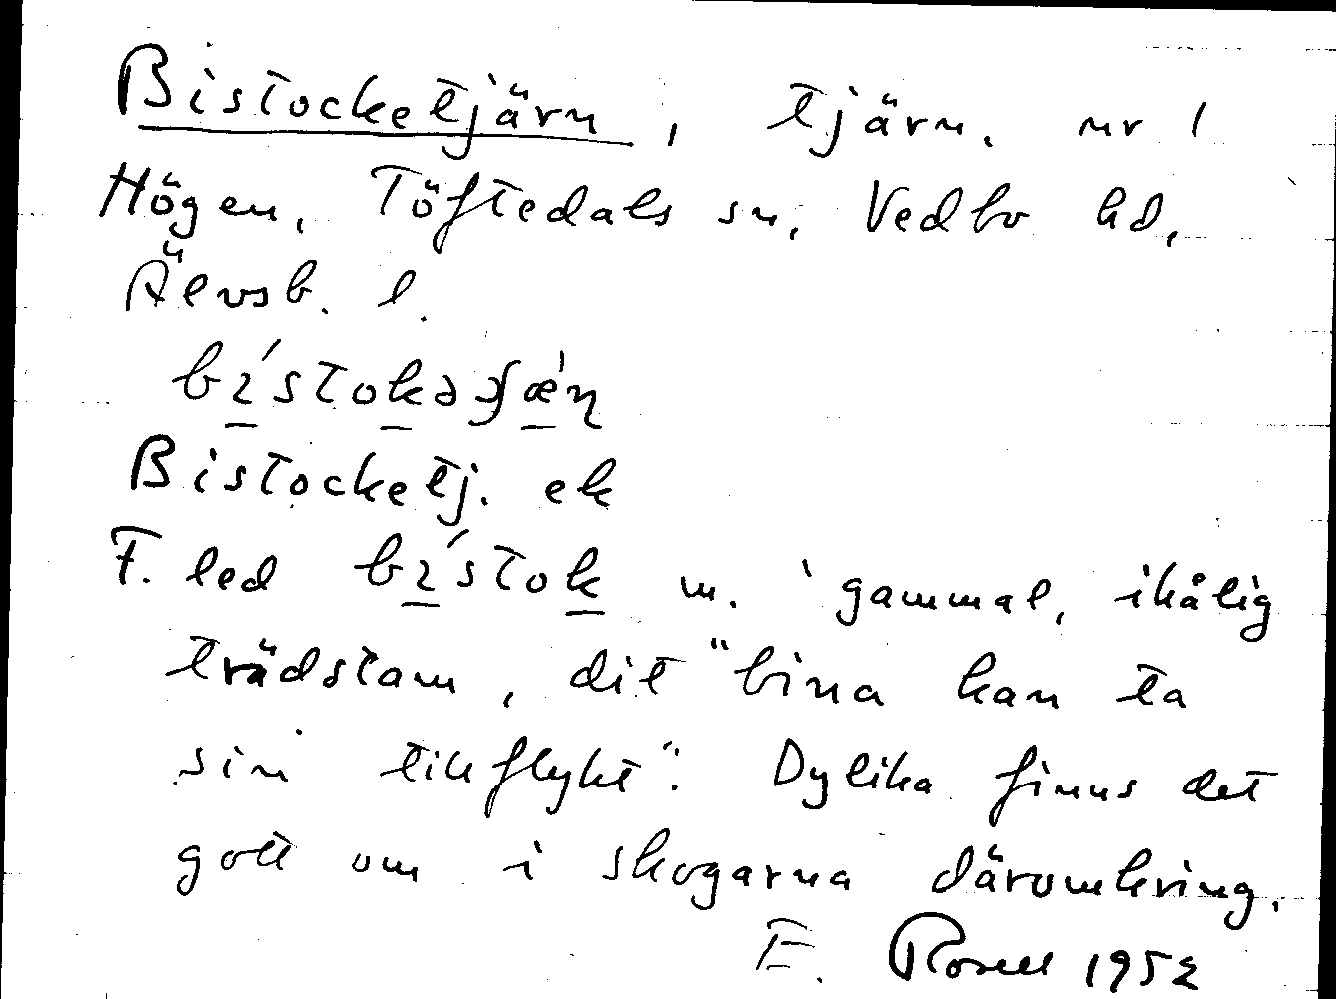 Bistocketjärn, tjärn, nr 1
Högen, Töftedals sn, Vedbo hd,
Älvsb. l.
Bistocketj. ek
F. led m. 'gammal, ihålig
trädstam, dit "bina kan ta
sin tillflykt". Dylika finns det
gott om i skogarna däromkring.
E. Rosell 1952